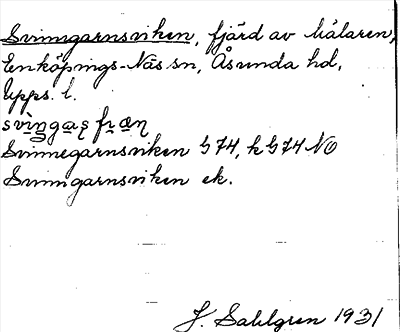 Svinngarnsviken, fjärd av Mälaren,
Enköpings-Näs sn, Åsunda hd,
Upps. l.
Svinnegarnsviken G 74, k G 74 NO
Svinngarnsviken ek.
J. Sahlgren 1931